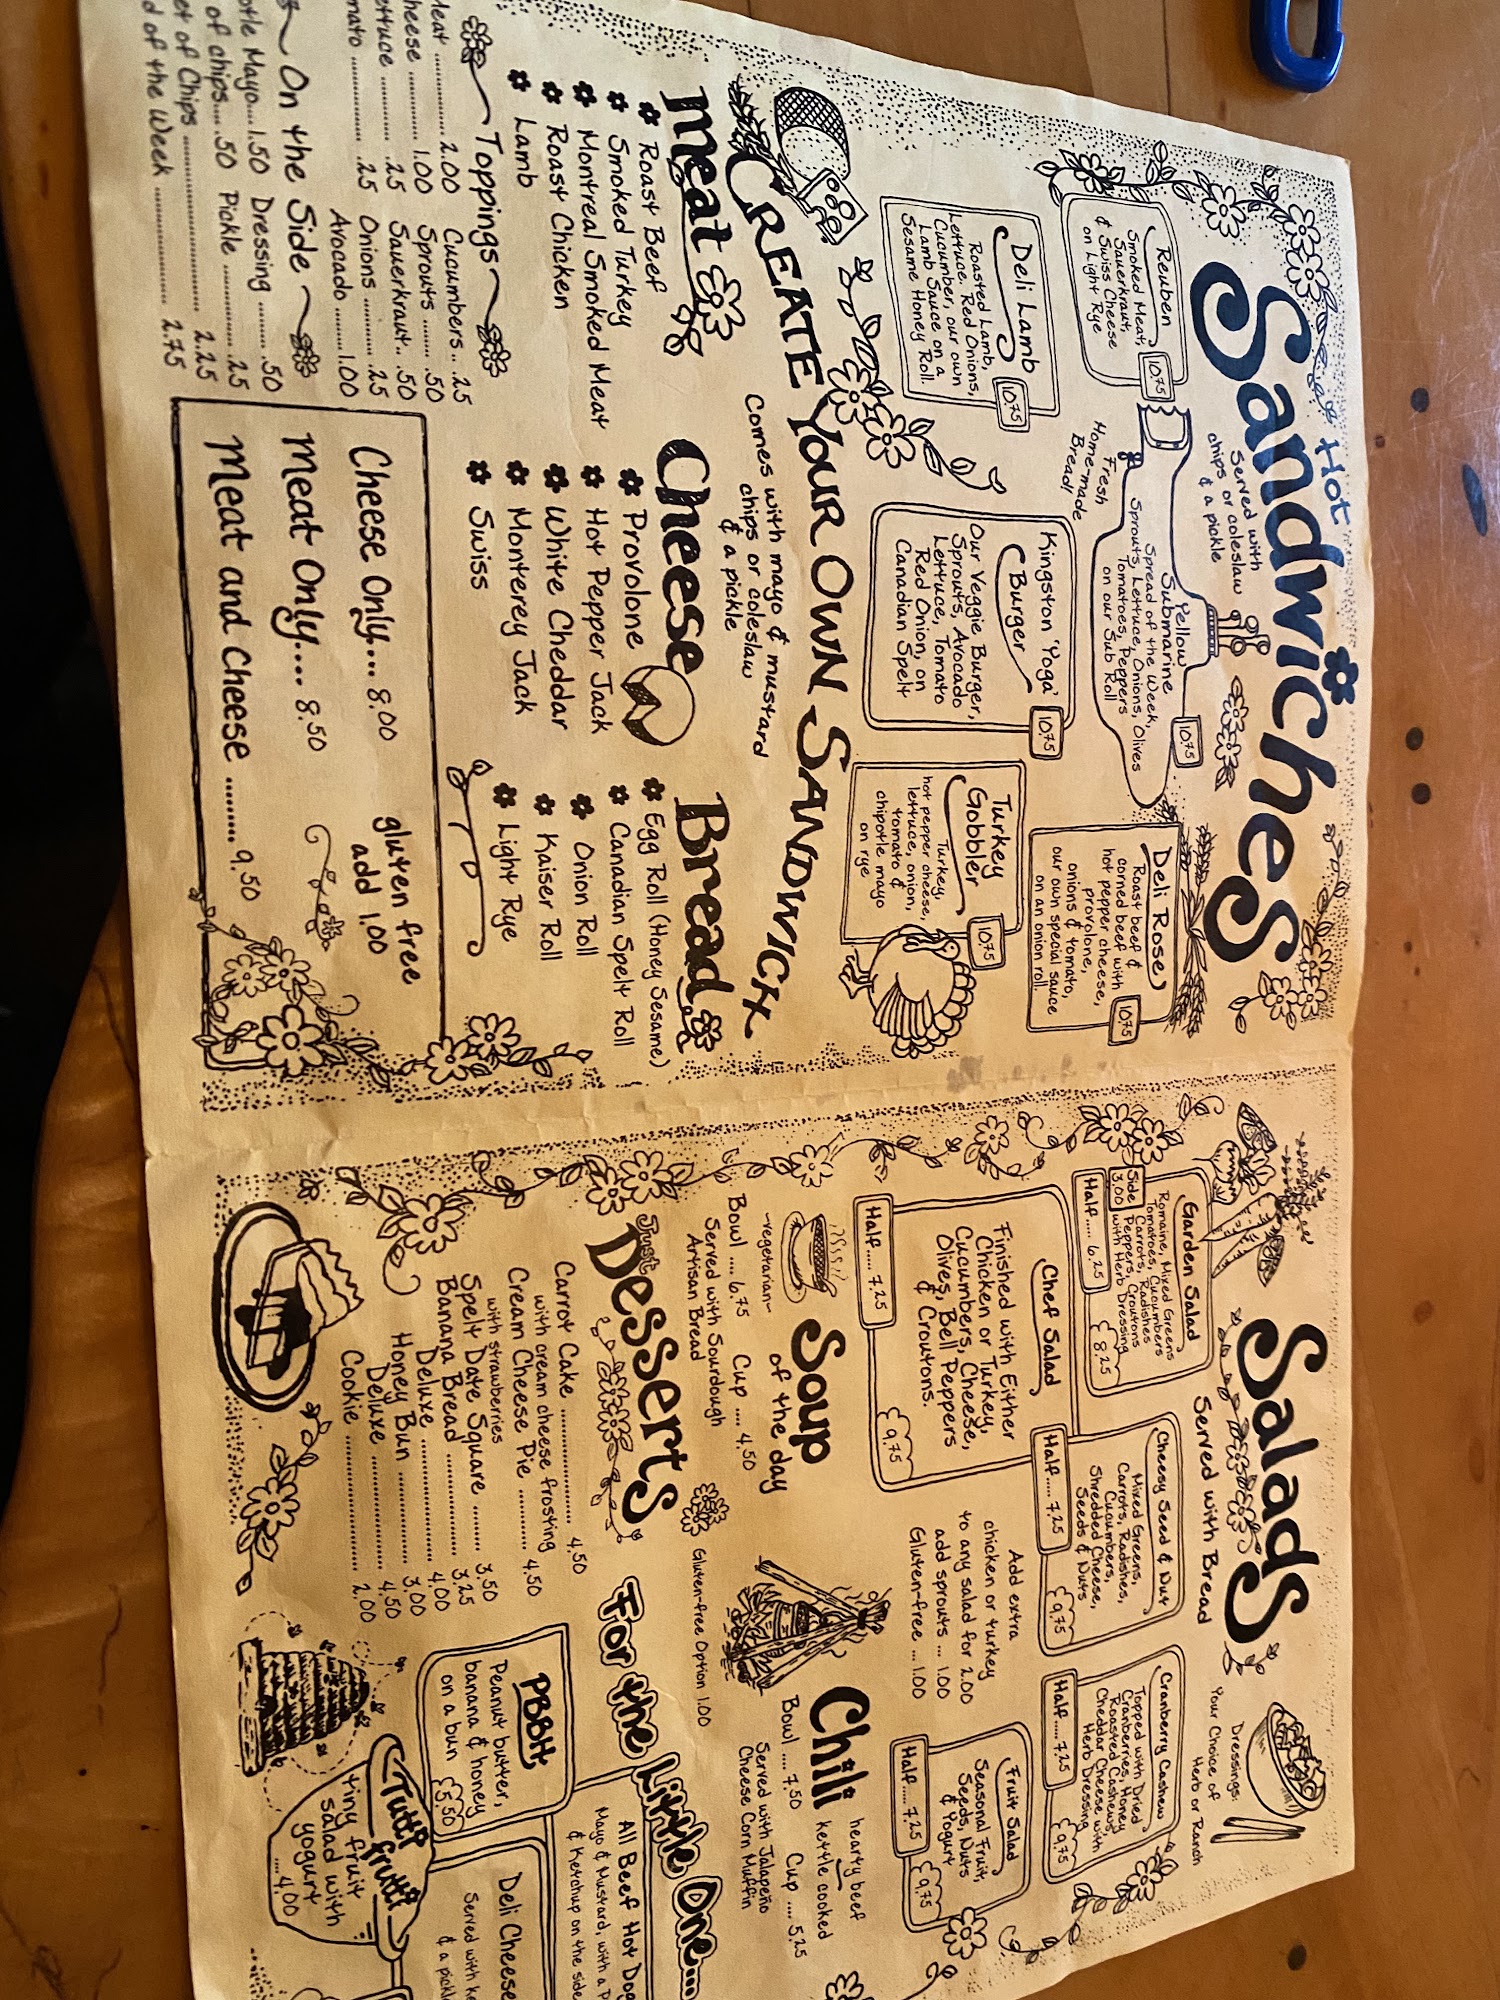 Hot
Sandwiches
Served with
chips or coleslaw
& a pickle
Reuben
Smoked Meat,
Sauerkraut,
& Swiss Cheese
on Light Rye
10.75
Fresh
Home-made
Bread!
Yellow
Submarine
Spread of the Week,
Sprouts, Lettuce, Onions, Olives
Tomatoes, Peppers
on our Sub Roll
10.75
Deli Rose
Roast beef &
corned beef with
hot pepper cheese,
provolone,
onions & tomato,
our own special sauce
on an onion roll.
10.75
Deli Lamb
Roasted Lamb,
Lettuce, Red Onions,
Cucumber, our own
Lamb Sauce on a
Sesame Honey Roll.
10.75
Kingston 'Yoga'
Burger
Our Veggie Burger,
Sprouts, Avocado
Lettuce, Tomato
Red Onion, on
Canadian Spelt
10.75
Turkey
Gobbler
Turkey,
hot pepper cheese,
lettuce, onion,
tomato &
chipotle mayo
on rye
10.75
CREATE YOUR OWN SANDWICH
Comes with mayo & mustard
chips or coleslaw
& a pickle
Meat
Roast Beef
Smoked Turkey
Montreal Smoked Meat
Roast Chicken
Lamb
Cheese
Provolone
Hot Pepper Jack
White Cheddar
Monterey Jack
Swiss
Bread
Egg Roll (Honey Sesame)
Canadian Spelt Roll
Onion Roll
Kaiser Roll
Light Rye
Toppings
Meat ............ 2.00 Cucumbers .. .25
Cheese ......... 1.00 Sprouts ...... .50
Lettuce ......... .25 Sauerkraut.. .50
mato ............ .25 Onions .......... .25
Avocado ........ 1.00
On the Side
otle Mayo.... 1.50 Dressing ......... .50
of chips..... .50 Pickle .............. .25
et of Chips ........................ 2.25
d of the Week .................... 2.75
Cheese Only... 8.00
Meat Only.... 8.50
Meat and Cheese ......... 9.50
gluten free
add 1.00
Salads
Served with Bread
Dressings:
Your Choice of
Herb or Ranch
Garden Salad
Romaine, Mixed Greens
Tomatoes, Cucumbers
Carrots, Radishes
Peppers, Croutons
with Herb Dressing
Side
3.00
Half...... 6.25
8.25
Cheesy Seed & Nut
Mixed Greens,
Carrots, Radishes,
Cucumbers,
Shredded Cheese,
Seeds & Nuts
Half ..... 7.25
9.75
Cranberry Cashew
Topped with Dried
Cranberries, Honey
Roasted Cashews,
Cheddar Cheese with
Herb Dressing
Half ..... 7.25
9.75
Chef Salad
Finished with Either
Chicken or Turkey,
Cucumbers, Cheese,
Olives, Bell Peppers
& Croutons.
Half ..... 7.25
9.75
Add extra
chicken or turkey
to any salad for 2.00
add sprouts ... 1.00
Gluten-free ... 1.00
Fruit Salad
Seasonal Fruit,
Seeds, Nuts
& Yogurt
Half ..... 7.25
9.75
Soup
of the day
-vegetarian-
Bowl .... 6.75 Cup .... 4.50
Served with Sourdough
Artisan Bread
Gluten-free Option 1.00
Chili
hearty beef
kettle cooked
Bowl .... 7.50 Cup .... 5.25
Served with Jalapeño
Cheese Corn Muffin
Just
Desserts
Carrot Cake .................. 4.50
with cream cheese frosting
Cream Cheese Pie ........... 4.50
with strawberries
Spelt Date Square ......... 3.50
Banana Bread .............. 3.25
Deluxe ..................... 4.00
Honey Bun ................. 3.00
Deluxe ..................... 4.50
Cookie ....................... 2.00
For the Little One...
PBBH
Peanut butter,
banana & honey
on a bun 5.50
All Beef Hot Dog
Mayo & Mustard, with a P
& Ketchup on the side
Deli Cheese
Served with ke
& a pickl
Tutti
frutti
tiny fruit
salad with
yogurt
.... 4.00